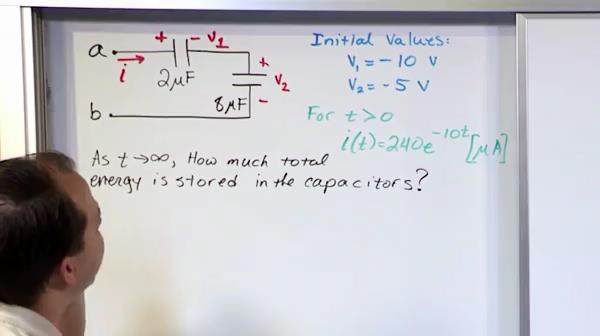 a
+ - V₁
i
2μF
+
V₂
-
8μF
b
Initial Values:
V₁ = -10 V
V₂ = -5 V
For t>0
i(t)=240e^-10t [μA]
As t→∞, How much total
energy is stored in the capacitors?